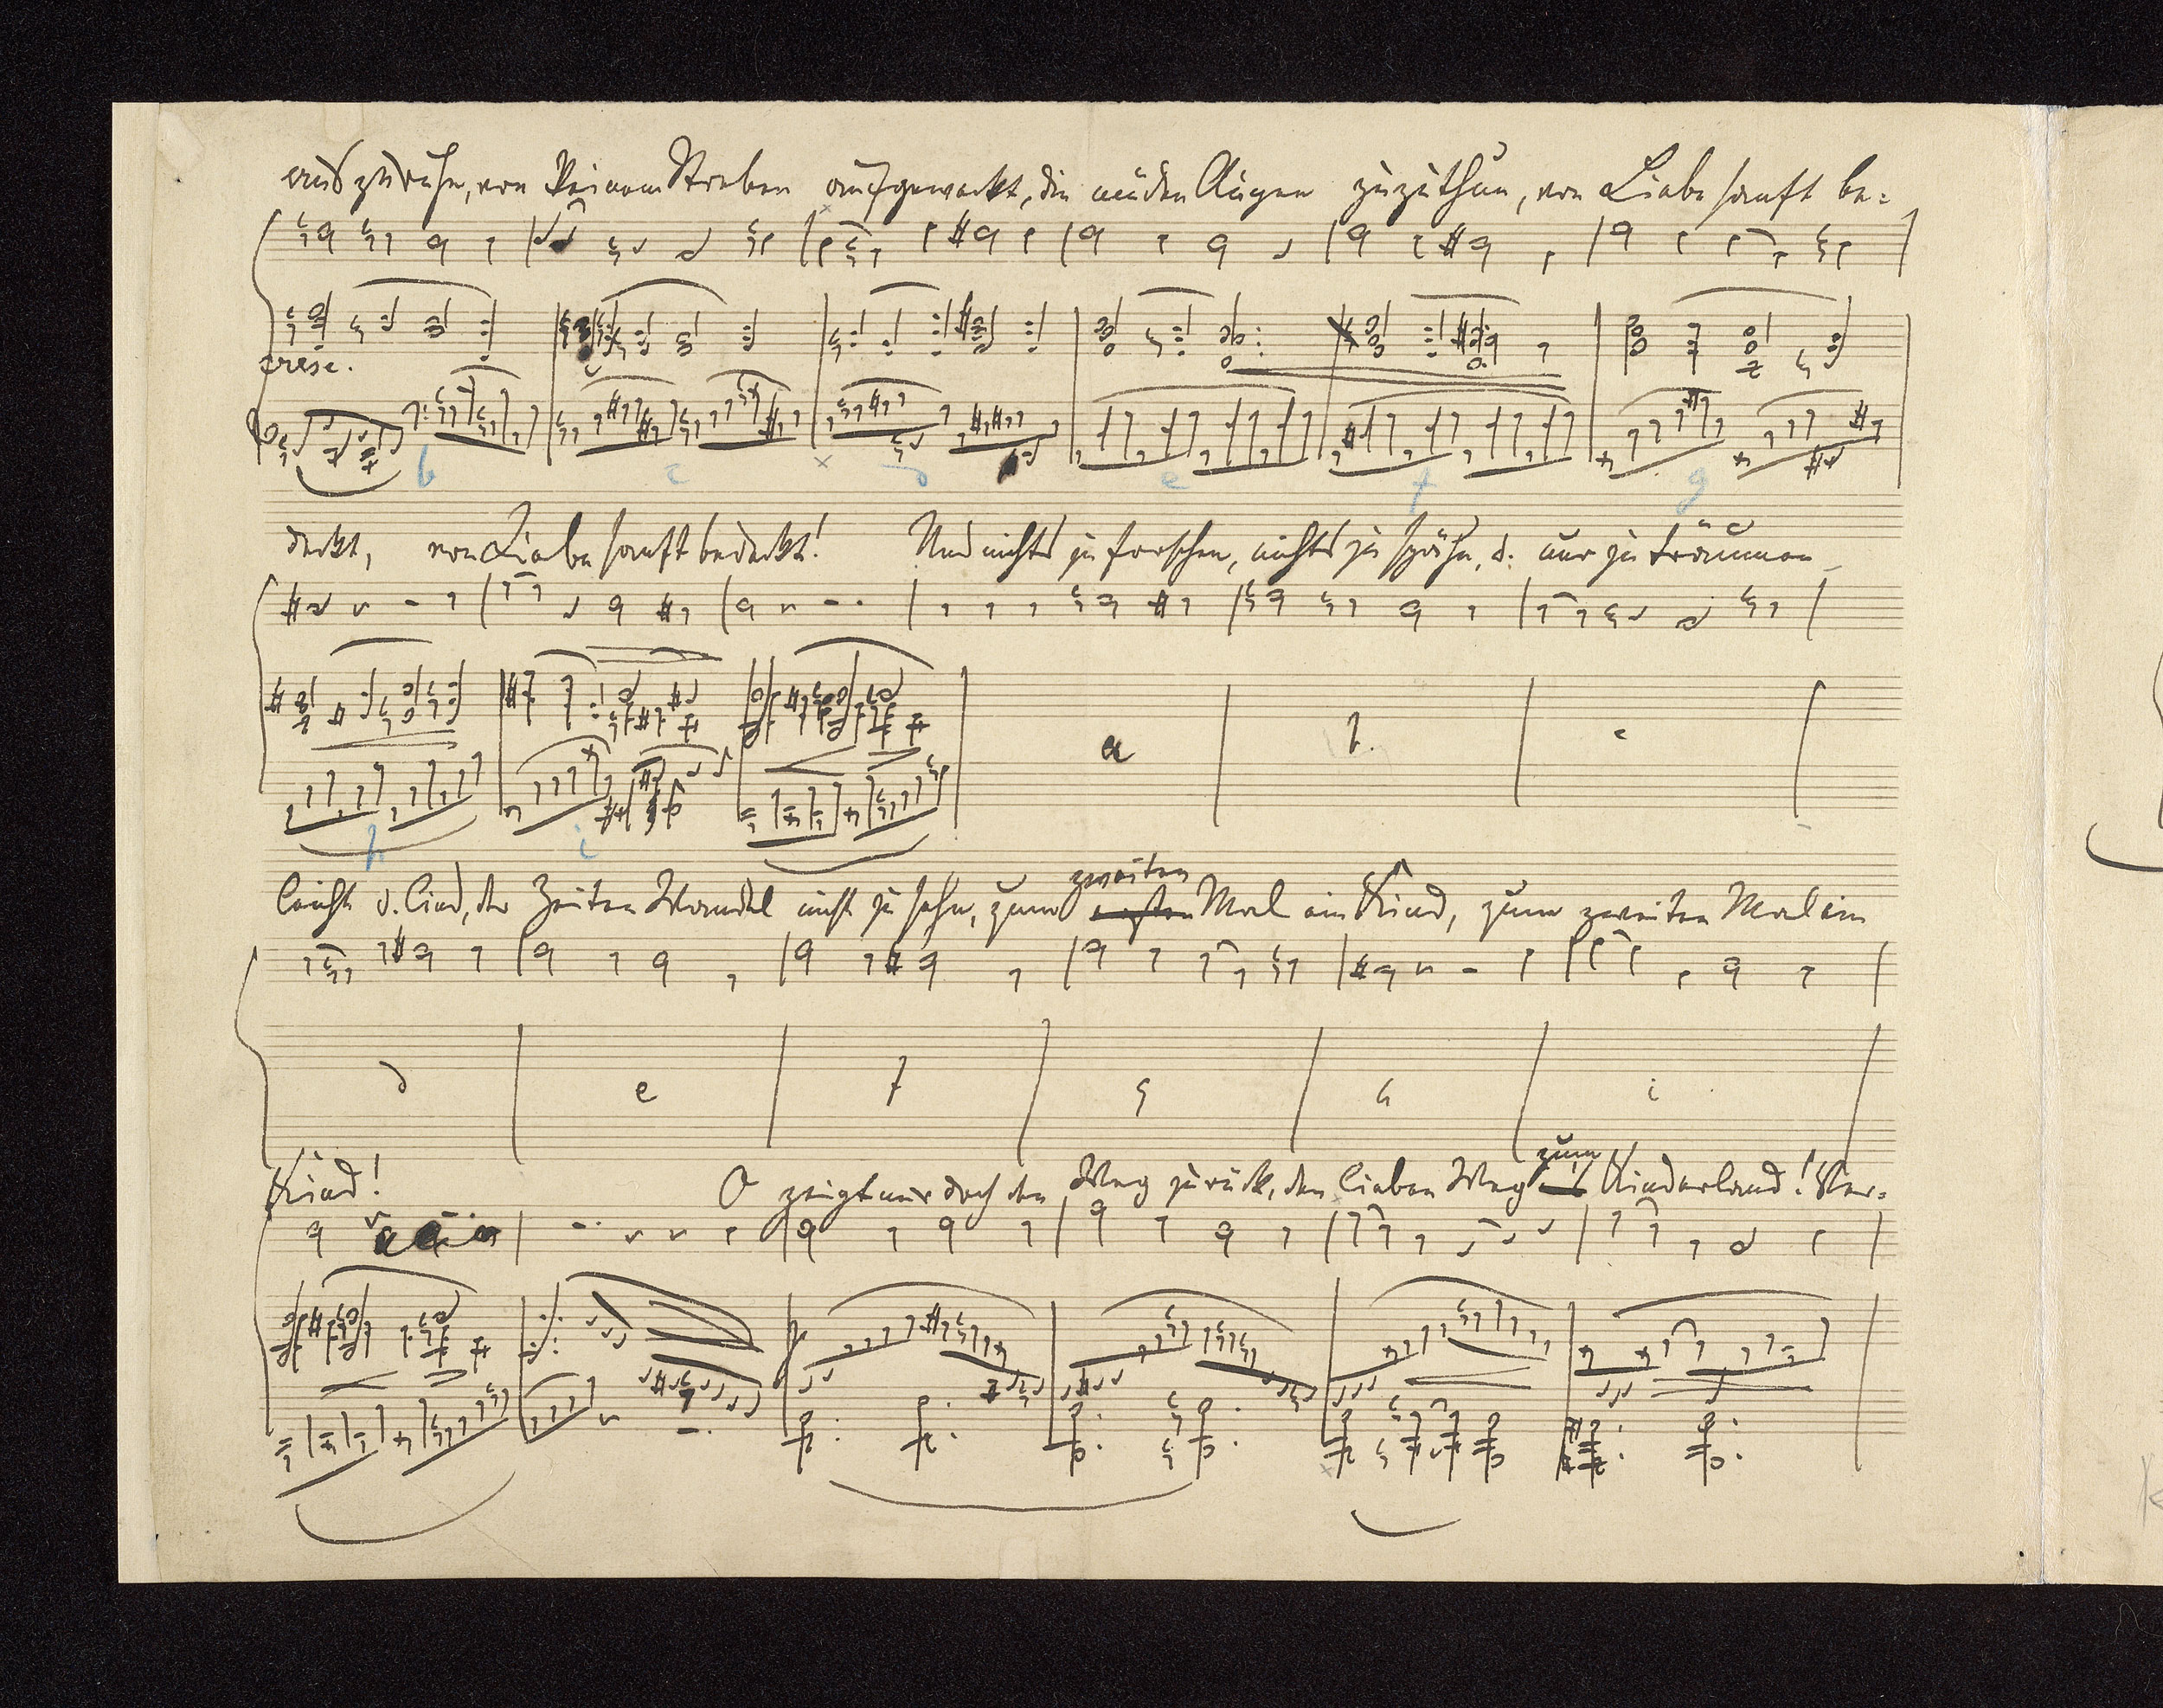 auszuruhn, von keinem Streben aufgeweckt, die müden Augen zuzuthun, von Liebe sanft be=
cresc.
b c d e f g
deckt, von Liebe sanft bedeckt! Und nichts zu forschen, nichts zu spähn, u. nur zu träumen
a b. c
h i
zweiten
leicht u. lind, der Zeiten Wandel nicht zu sehn, zum ersten Mal ein Kind, zum zweiten Mal ein
d e f g h i
zum
Kind! O zeigt mir doch den Weg zurück, den lieben Weg Kinderland! Ver=
p